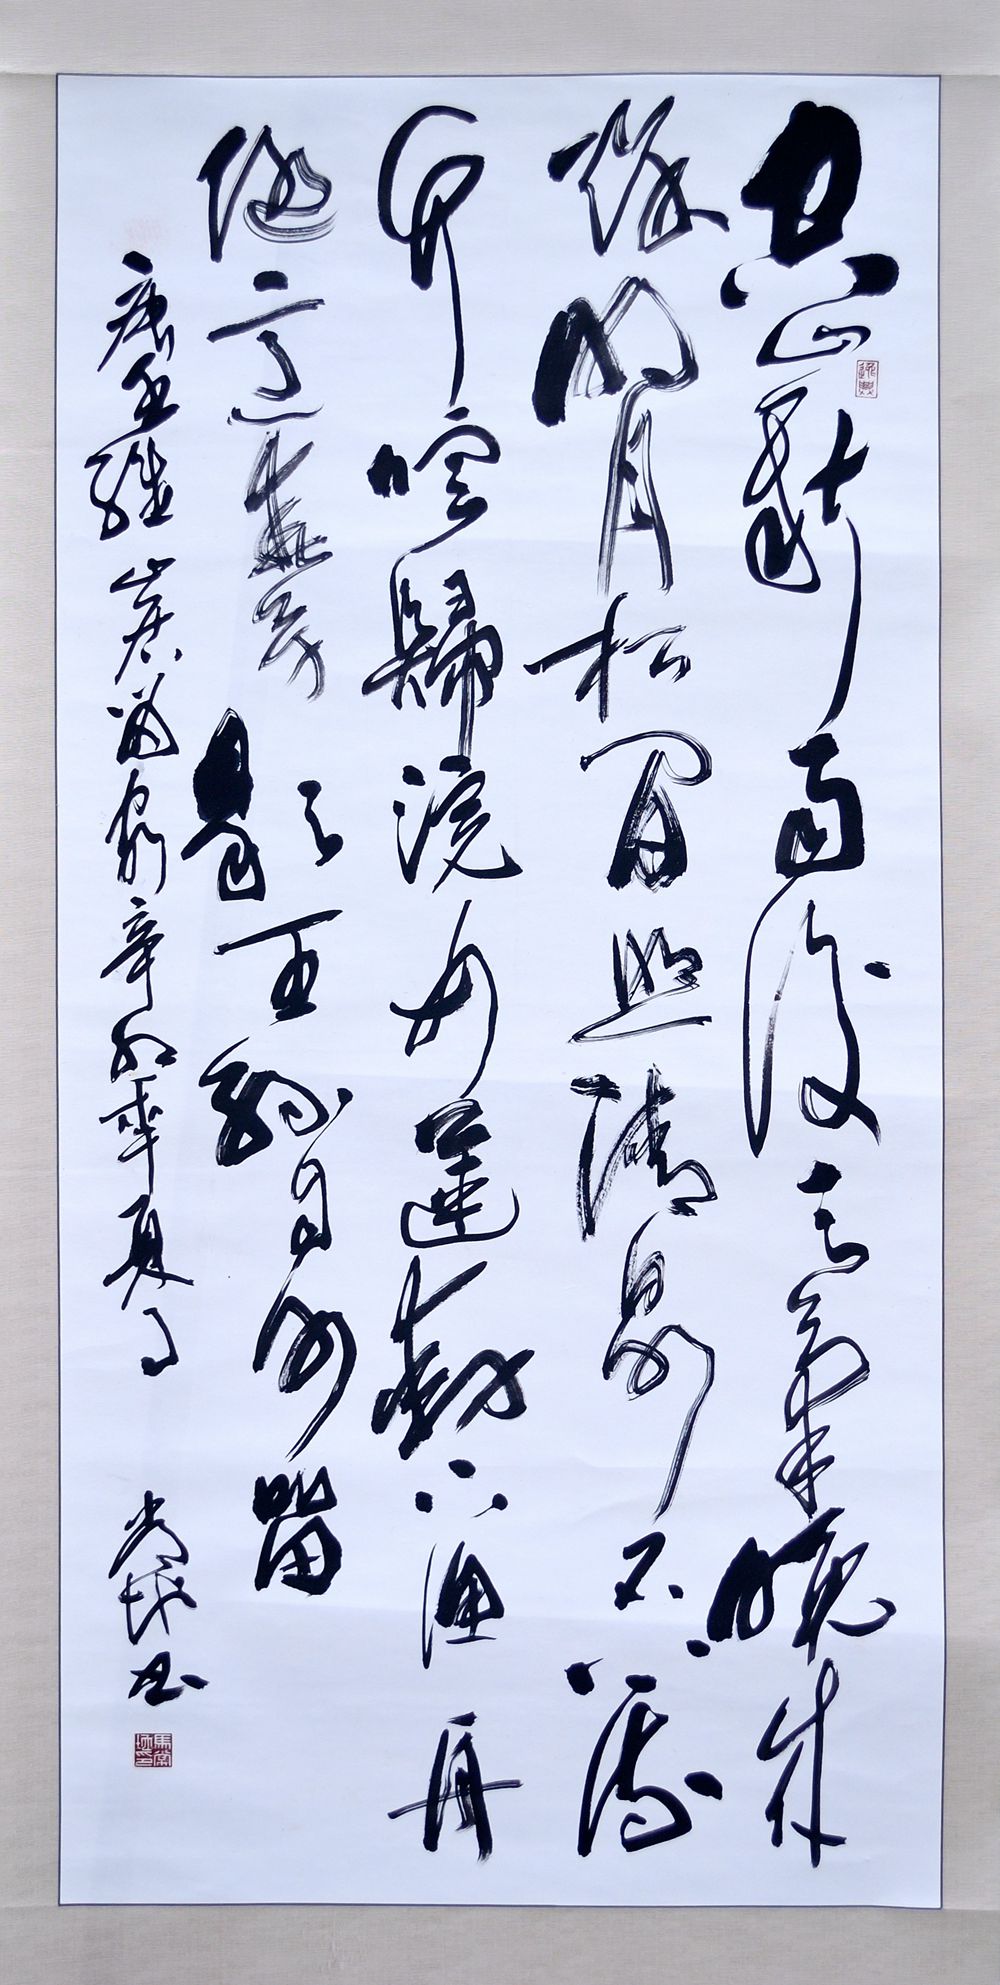 空山新雨後天氣晚來
秋明月松間照清泉石上流
竹喧歸浣女蓮動下漁舟
隨意春芳歇王孫自可留
唐王維山居秋
书